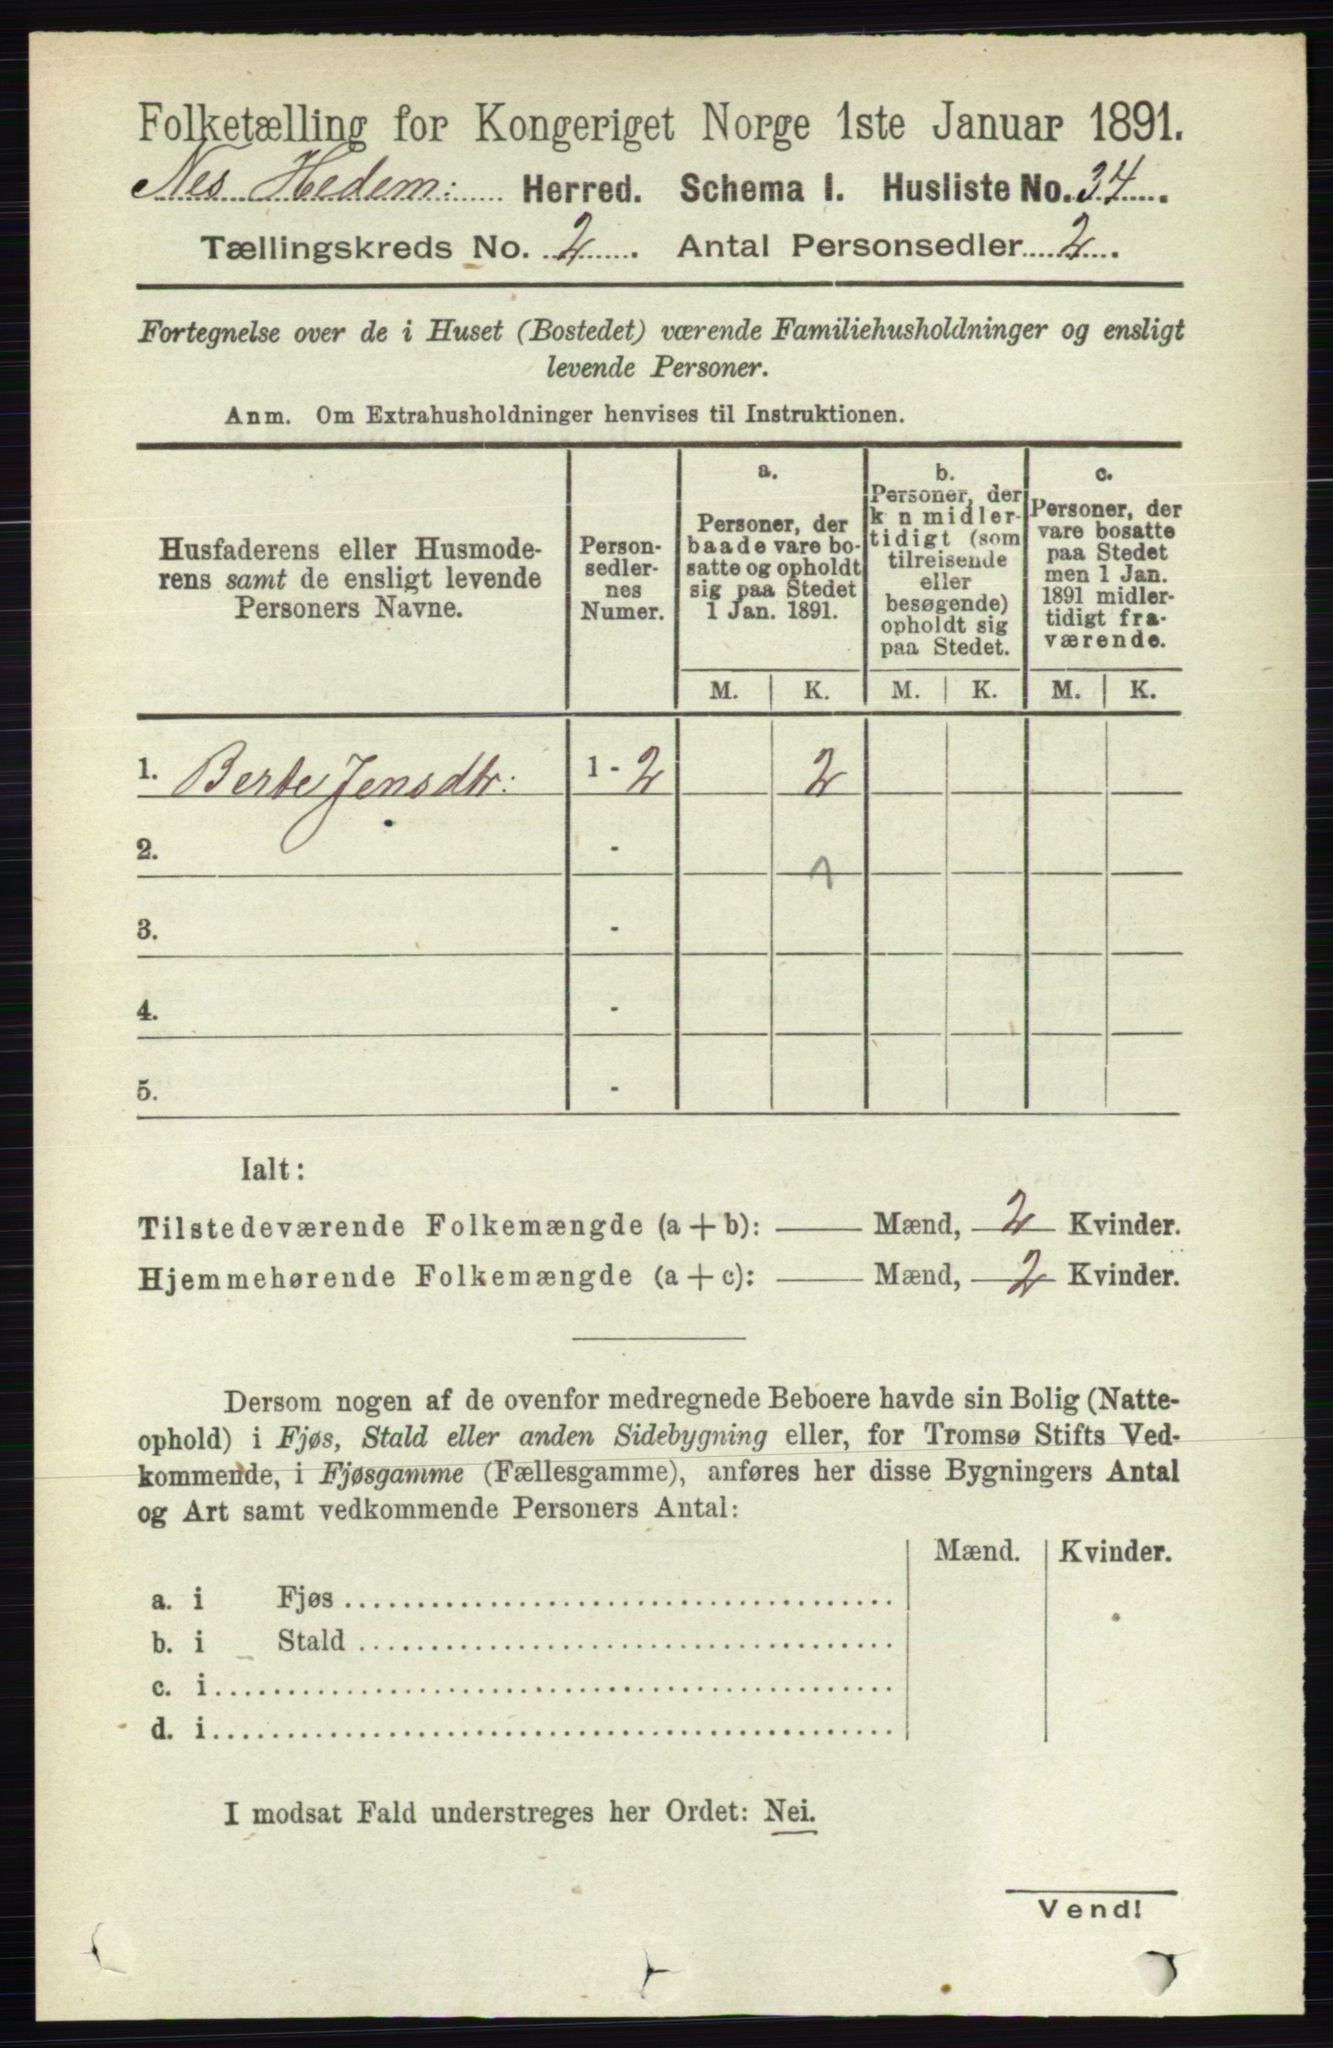 Folketælling for Kongeriget Norge 1ste Januar 1891.
Nes Hedem: Herred. Schema I. Husliste No. 34.
Tællingskreds No. 2. Antal Personsedler 2.
Fortegnelse over de i Huset (Bostedet) værende Familiehusholdninger og ensligt
levende Personer.
Anm. Om Extrahusholdninger henvises til Instruktionen.
Husfaderens eller Husmode-
rens samt de ensligt levende
Personers Navne.
Person-
sedler-
nes
Numer.
a.
Personer, der
baade vare bo-
satte og opholdt
sig paa Stedet
1 Jan. 1891.
b.
Personer, der
k n midler-
tidigt (som
tilreisende
eller
besøgende)
opholdt sig
paa Stedet.
c.
Personer, der
vare bosatte
paa Stedet
men 1 Jan.
1891 midler-
tidigt fra-
værende.
M. K. M. K. M. K.
1. Berte Jensdtr: 1 - 2 2
2. -
3. -
4. -
5. -
Ialt:
Tilstedeværende Folkemængde (a + b): — Mænd, 2 Kvinder.
Hjemmehørende Folkemængde (a + c): — Mænd, 2 Kvinder.
Dersom nogen af de ovenfor medregnede Beboere havde sin Bolig (Natte-
ophold) i Fjøs, Stald eller anden Sidebygning eller, for Tromsø Stifts Ved-
kommende, i Fjøsgamme (Fællesgamme), anføres her disse Bygningers Antal
og Art samt vedkommende Personers Antal:
Mænd. Kvinder.
a. i Fjøs
b. i Stald
c. i
d. i
I modsat Fald understreges her Ordet: Nei.
Vend!